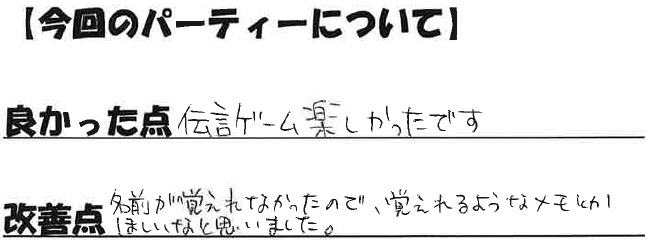 【今回のパーティーについて】
良かった点 伝言ゲーム楽しかったです
改善点 名前が覚えれなかったので、覚えれるようなメモとか
ほしいなと思いました。